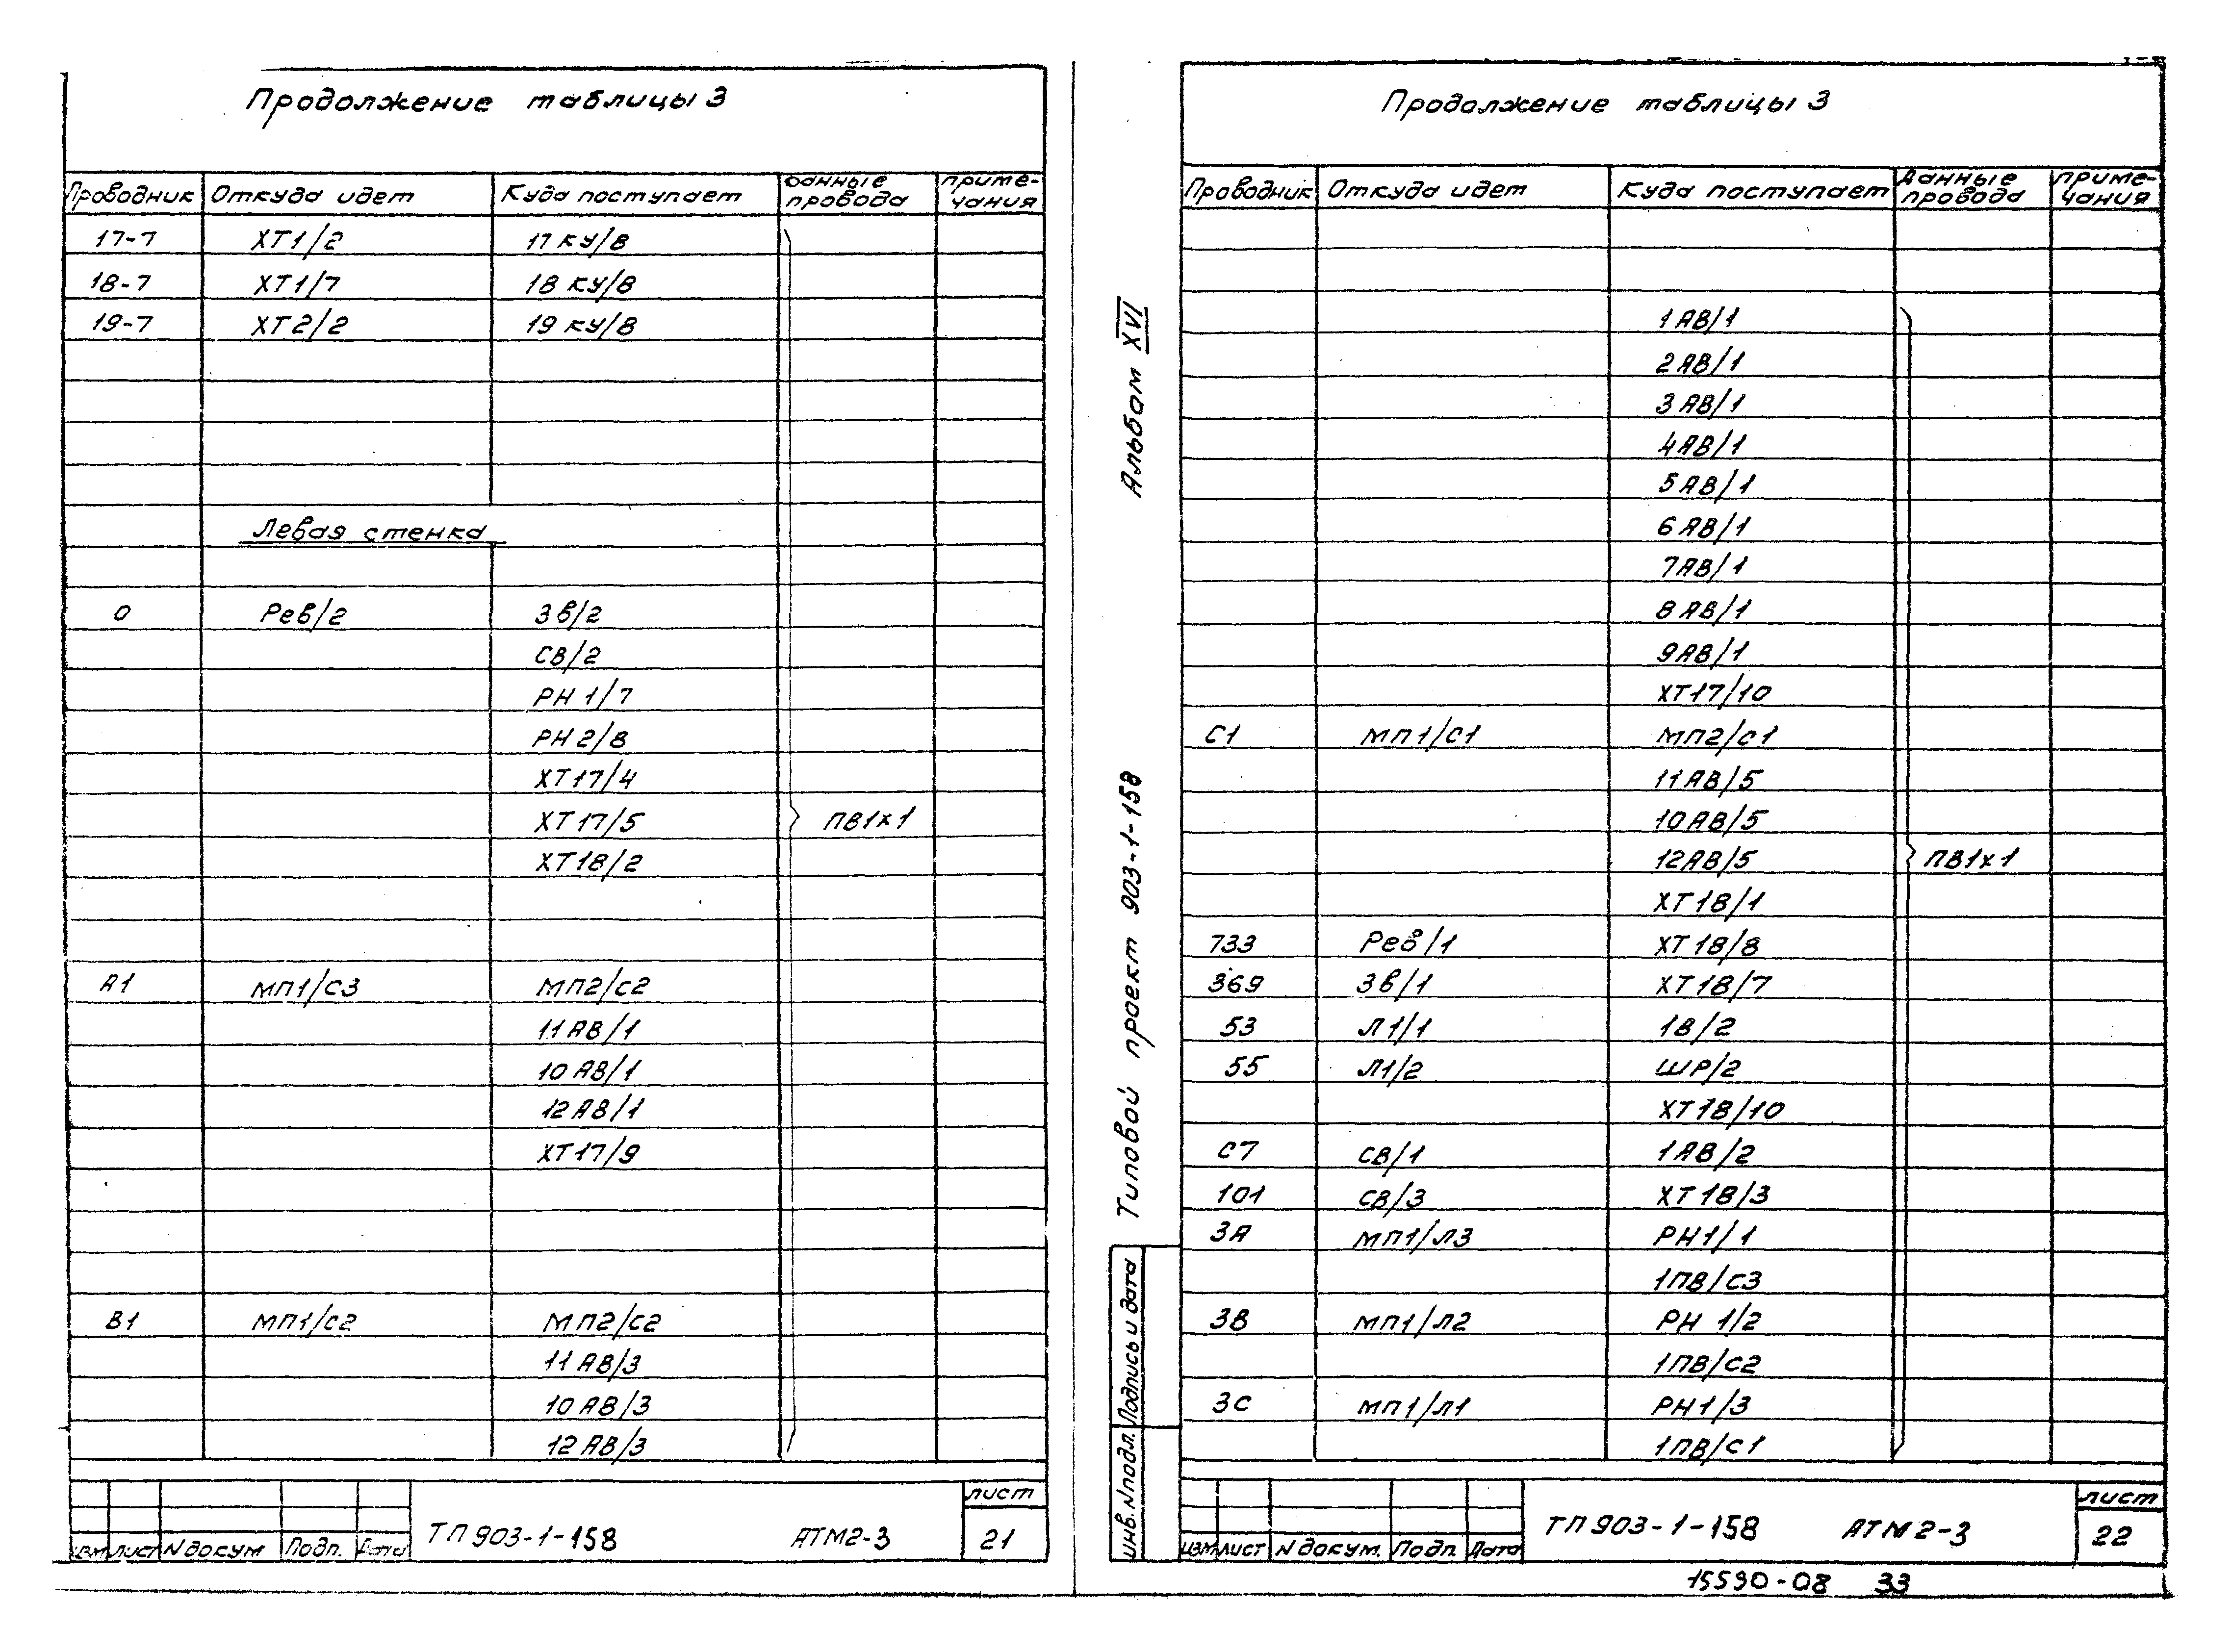 Продолжение таблицы 3
Проводник Откуда идет Куда поступает Данные провода Примечания
17-7 ХТ1/2 17 КУ/8
18-7 ХТ1/7 18 КУ/8
19-7 ХТ2/2 19 КУ/8
Левая стенка
0 Рев/2 Зв/2
СВ/2
РН 1/7
РН 2/8
ХТ17/4
ХТ17/5 ПВ1х1
ХТ18/2
А1 МП1/С3 МП2/С2
11 АВ/1
10 АВ/1
12 АВ/1
ХТ17/9
В1 МП1/С2 МП2/С2
11 АВ/3
10 АВ/3
12 АВ/3
Изм Лист N докум Подп. Дата
ТП 903-1-158 АТМ2-3
Лист
21
Продолжение таблицы 3
Проводник Откуда идет Куда поступает Данные провода Примечания
1 АВ/1
2 АВ/1
3 АВ/1
4 АВ/1
5 АВ/1
6 АВ/1
7 АВ/1
8 АВ/1
9 АВ/1
ХТ17/10
С1 МП1/С1 МП2/С1
11 АВ/5
10 АВ/5
12 АВ/5 ПВ1х1
ХТ18/1
733 Рев/1 ХТ18/8
369 Зв/1 ХТ18/7
53 Л1/1 1В/2
55 Л1/2 ШР/2
ХТ18/10
С7 СВ/1 1АВ/2
101 СВ/3 ХТ18/3
3А МП1/Л3 РН1/1
1ПВ/С3
3В МП1/Л2 РН 1/2
1ПВ/С2
3С МП1/Л1 РН1/3
1ПВ/С1
Изм Лист N докум. Подп. Дата
ТП 903-1-158 АТМ2-3
Лист
22
15590-08 33
Альбом XVI
Типовой проект 903-1-158
Подпись и дата
Инв. N подл.